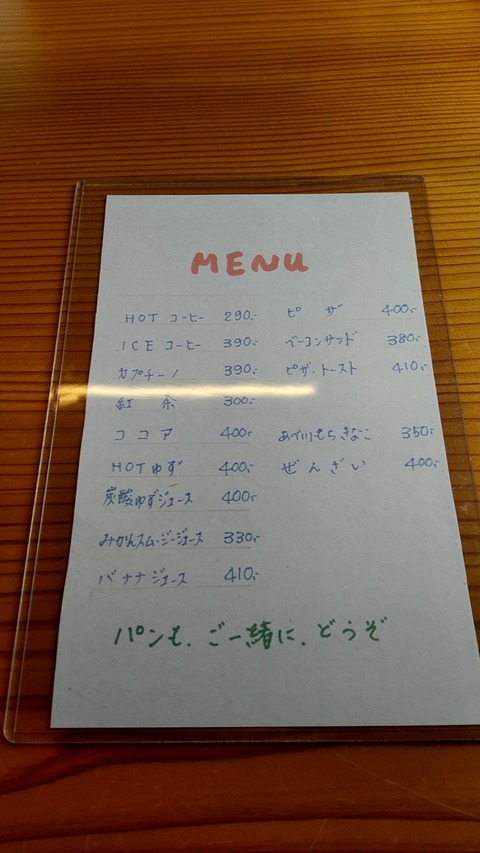 MENU
HOT コーヒー 290.-
ICE コーヒー 390.-
カプチーノ 390.-
紅茶 300.-
ココア 400.-
HOTゆず 400.-
炭酸ゆずジュース 400.-
みかんスムージージュース 330.-
バナナジュース 410.-
ピザ 400.-
ベーコンサンド 380.-
ピザ.トースト 410.-
あべ川もちきなこ 350.-
ぜんざい 400.-
パンも、ご一緒に、どうぞ